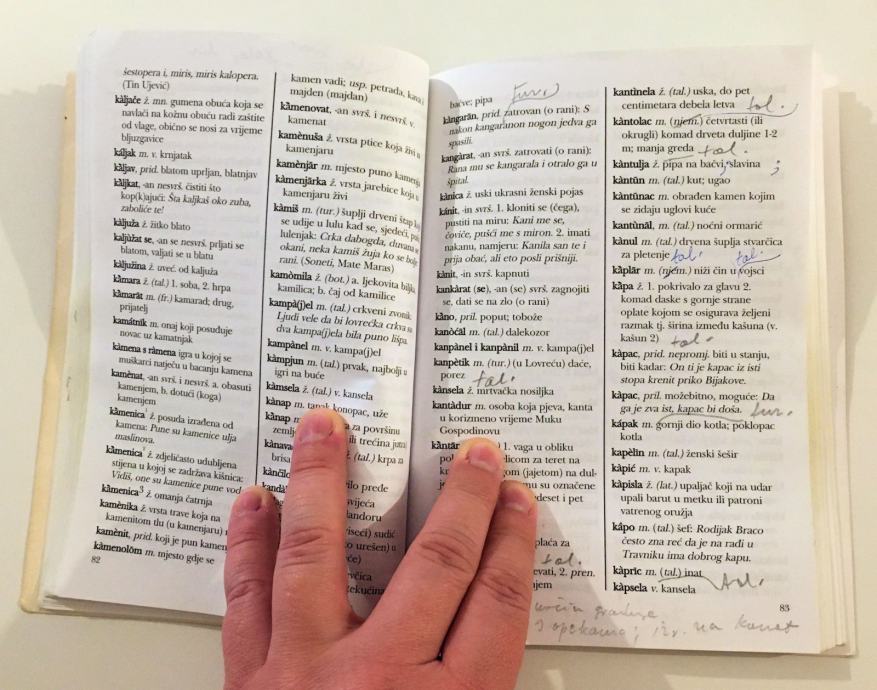 šestopera i, miris, miris kalopera.
(Tin Ujević)
kàljače ž. mn. gumena obuća koja se
navlači na kožnu obuću radi zaštite
od vlage, obićno se nosi za vrijeme
bljuzgavice
káljak m. v. krnjatak
káljav, prid. blatom uprljan, blatnjav
káljkat, -an nesvrš. čistiti što
kop(k)ajući: Šta kaljkaš oko zuba,
zaboliće te!
kaljuža ž. žitko blato
kaljùžat se, -an se nesvrš. prljati se
blatom, valjati se u blatu
kaljužina ž. uveć. od kaljuža
kàmara ž. (tal.) 1. soba, 2. hrpa
kamarât m. (fr.) kamarad; drug,
prijatelj
kamátnik m. onaj koji posuđuje
novac uz kamatnjak
kàmena s ràmena igra u kojoj se
muškarci natječu u bacanju kamena
kamènat, -an svrš. i nesvrš. a. obasuti
kamenjem, b. dotući (koga)
kamenjem
kàmenica¹ ž. posuda izrađena od
kamena: Pune su kamenice ulja
maslinova.
kàmenica² ž. zdjeličasto udubljena
stijena u kojoj se zadržava kišnica:
Vidiš, one su kamenice pune vod
kàmenica³ ž. omanja čatrnja
kamènika ž. vrsta trave koja na
kamenitom tlu (u kamenjaru)
kamènit, prid. koji je pun kamen
kàmenolõm m. mjesto gdje se
82
kamen vadi; usp. petrada, kava
majden (majdan)
kàmenovat, -an svrš. i nesvrš. v.
kamenat
kamènuša ž. vrsta ptice koja živi u
kamenjaru
kamènjãr m. mjesto puno kamenja
kàmenjãrka ž. vrsta jarebice koja u
kamenjaru živi
kàmiš m. (tur.) šuplji drveni štap koj
se udije u lulu kad se, sjedeći, puši
lulenjak: Crka dabogda, duvana se
okani, neka kamiš žuja ko se bolje
rani. (Soneti, Mate Maras)
kamòmila ž. (bot.) a. ljekovita biljka
kamilica; b. čaj od kamilice
kampà(j)el m. (tal.) crkveni zvonik:
Ljudi vele da bi lovrečka crkva su
dva kampa(j)ela bila puno lišpa.
kampànel m. v. kampa(j)el
kàmpjun m. (tal.) prvak, najbolji u
igri na buće
kàmsela ž. (tal.) v. kansela
kànap m. tanak konopac, uže
kànap m. za površinu
zemlj ili trećina jutra
kànava ž. (tal.) krpa za
brisa
kànčilo ilo pređe
kandà vijeća
landoru
viseći) sudić
o urešen) u
će)
rvčica
tekućina
baćve; pipa tur.
kàngarãn, prid. zatrovan (o rani): S
nakon kangaranon nogon jedva ga
spasili.
kangàrat, -an svrš. zatrovati (o rani):
Rana mu se kangarala i otralo ga u
špital.
kànica ž. uski ukrasni ženski pojas
kánit, -in svrš. 1. kloniti se (čega),
pustiti na miru: Kani me se,
čoviče, pušći me s miron. 2. imati
nakanu, namjeru: Kanila san te i
prija obać, ali eto posli prišniji.
kànit, -in svrš. kapnuti
kankàrat (se), -an (se) svrš. zagnojiti
se, dati se na zlo (o rani)
kàno, pril. poput; tobože
kanòćál m. (tal.) dalekozor
kanpànel i kanpànil m. v. kampa(j)el
kanpètik m. (tur.) (u Lovreću) daće,
porez tal.
kànsela ž. mrtvačka nosiljka
kantàdur m. osoba koja pjeva, kanta
u korizmeno vrijeme Muku
Gospodinovu
kàntãr 1. vaga u obliku
pol elicom za teret na
kraje gom (jajetom) na dul-
je mu su označene
deset i pet
plaća za
tal.
evati, 2. pren.
njem
način gradnje
s opekama; iz. na kanat
kantìnela ž. (tal.) uska, do pet
centimetara debela letva tal.
kàntolac m. (njem.) četvrtasti (ili
okrugli) komad drveta duljine 1-2
m; manja greda tal.
kàntulja ž. pipa na bačvi; slavina ;
kàntũn m. (tal.) kut; ugao
kàntũnac m. obrađen kamen kojim
se zidaju uglovi kuće
kantùnãl, m. (tal.) noćni ormarić
kànul m. (tal.) drvena šuplja stvarčica
za pletenje tal. tal.
kàplãr m. (njem.) niži čin u vojsci
kàpa ž. 1. pokrivalo za glavu 2.
komad daske s gornje strane
oplate kojom se osigurava željeni
razmak tj. širina između kašuna (v.
kašun 2) tal.
kàpac, prid. nepromj. biti u stanju,
biti kadar: On ti je kapac iz isti
stopa krenit priko Bijakove.
kàpac, pril. možebitno, moguće: Da
ga je zva ist, kapac bi doša. tur.
kápak m. gornji dio kotla; poklopac
kotla
kapèlin m. (tal.) ženski šešir
kàpić m. v. kapak
kàpisla ž. (lat.) upaljač koji na udar
upali barut u metku ili patroni
vatrenog oružja
kápo m. (tal.) šef: Rodijak Braco
često zna reć da je na radi u
Travniku ima dobrog kapu.
kàpric m. (tal.) inat
kàpsela v. kansela tal.
83